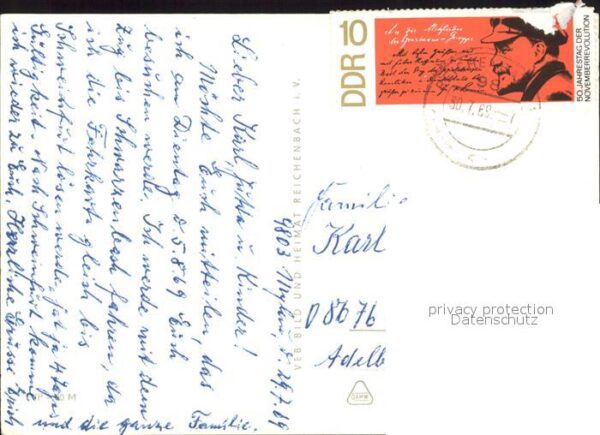 9803 Mylau, d. 29.7.69
Lieber Karl, Jutta u. Kinder!
Möchte Euch mitteilen, das
ich am Dienstag d. 5.8.69 Euch
besuchen werde. Ich werde mit dem
Zug bis Schwarzenbach fahren, da
ich die Fahrkarte gleich bis
Schweinfurt lösen werde, hat ja 4 Tage
Gültigkeit. Nach Schweinfurt komme
ich wieder zu Euch. Herzliche Grüsse Erich
und die ganze Familie.
VEB BILD UND HEIMAT REICHENBACH i. V.
DDR 10
An die Mitglieder
der Spartacus-Gruppe
50. JAHRESTAG DER
NOVEMBERREVOLUTION
30.7.69
Familie
Karl
D 8676
Adelb
privacy protection
Datenschutz